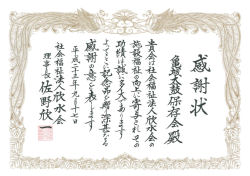 感謝状
亀崎太鼓保存会殿
貴会は社会福祉法人欣水会
施設福祉の向上に寄与されその
功績は誠に多大であります
よってここに記念品を贈り深甚なる
感謝の意を表します
平成二十五年九月十七日
社会福祉法人欣水会
理事長佐野欣一